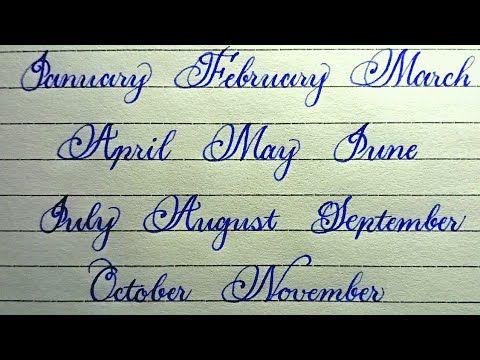 January February March
April May June
July August September
October November